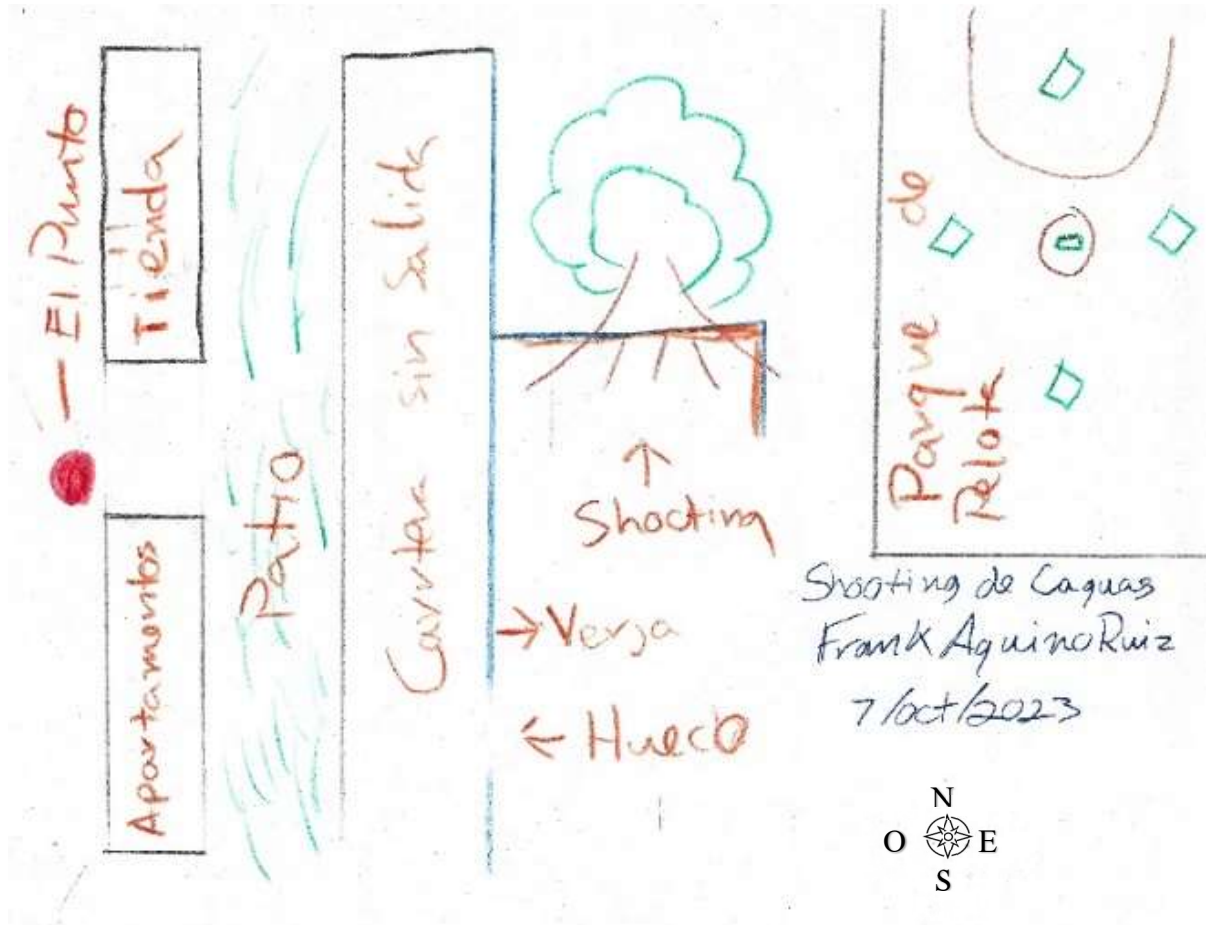 El Punto
Tienda
Apartamentos
Patio
Carretera sin Salida
Shooting
→ Verja
← Hueco
Parque de
Pelota
Shooting de Caguas
Frank Aquino Ruiz
7/oct/2023
N
O E
S